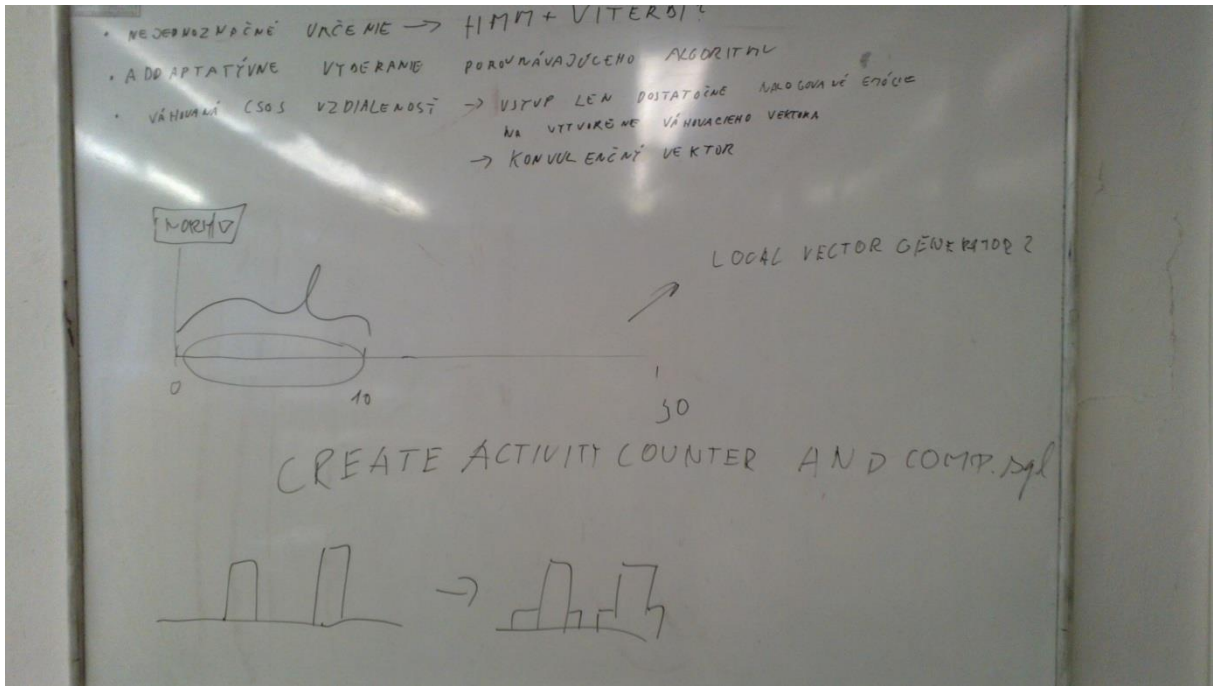 • NEJEDNOZNAČNÉ URČENIE → HMM + VITERBI?
• ADDAPTATÝVNE VYBERANIE POROVNÁVAJÚCEHO ALGORITMU
• VÁHOVANÁ CSOS VZDIALENOSŤ → VSTUP LEN DOSTATOČNE NALOGOVANÉ EMÓCIE
NA VYTVORENE VÁHOVACIEHO VEKTORA
→ KONVULENČNÝ VEKTOR
LOCAL VECTOR GENERATOR?
0
10
30
CREATE ACTIVITY COUNTER AND COMP. sql